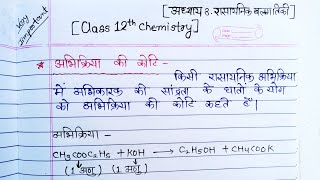 Very important
[अध्याय 8. रासायनिक बलगतिकी]
[Class 12th Chemistry]
* अभिक्रिया की कोटि -
किसी रासायनिक अभिक्रिया
में अभिकारक की सांद्रता के घातों के योग
को अभिक्रिया की कोटि कहते हैं।
अभिक्रिया -
CH3COOC2H5 + KOH → C2H5OH + CH4COOK
(1 अणु) (1 अणु)